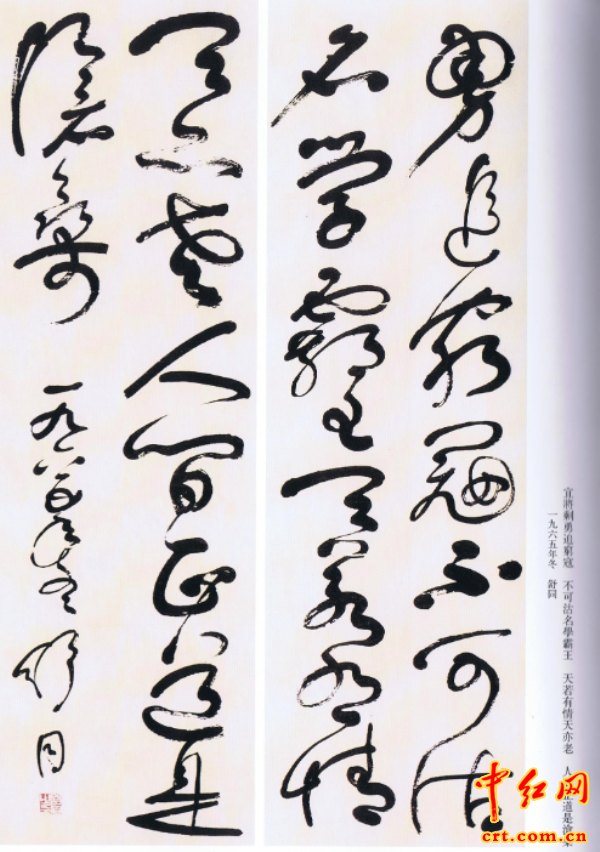 勇追窮寇不可沽
名学霸王天若有情
天亦老人間正道是
滄桑 一九六五年冬 舒同
宜將剩勇追窮寇 不可沽名學霸王 天若有情天亦老 人道是滄桑
一九六五年冬 舒同
中红网
crt.com.cn